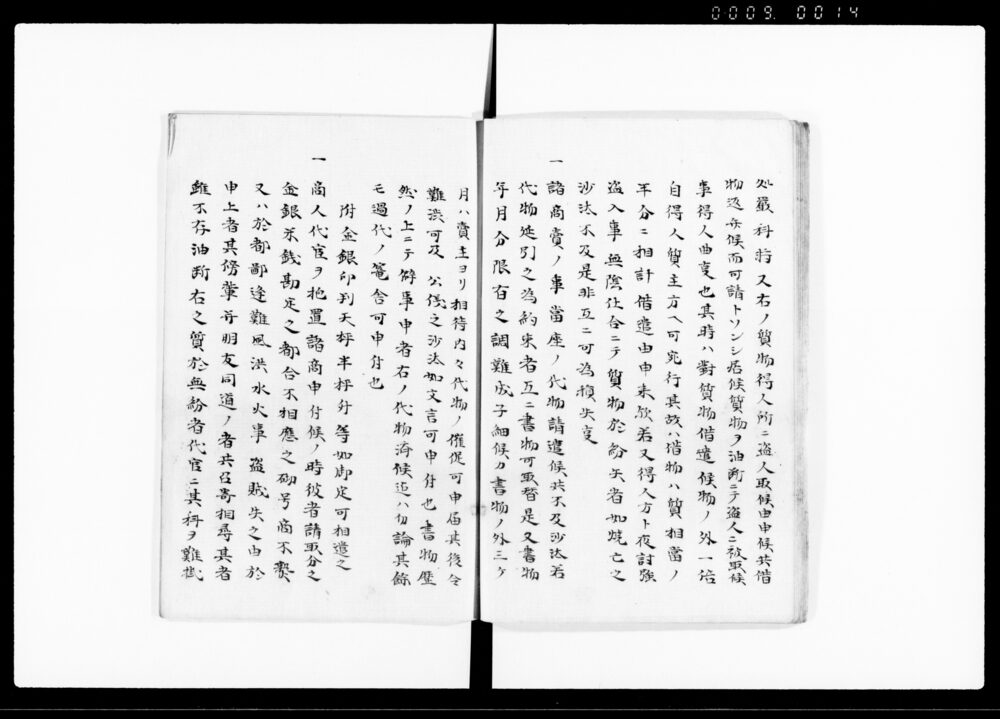 0009. 0014
処嚴科將又右ノ質物得人所ニ盗人取候由申候共借
物返弁候而可請トソンシ居候質物ヲ油断ニテ盗人ニ被取候
事得人曲事也其時ハ對質物借遣候物ノ外一倍
自得人質主方ヘ可宛行其故ハ借物ハ質相當ノ
半分ニ相計借遣由申来欤若又得人方ト夜討強
盗入事無陰仕合ニテ質物於紛失者如焼亡之
沙汰不及是非互ニ可為損失事
一 諸商賣ノ事當座ノ代物請遣候共不及沙汰若
代物延引之為約束者互ニ書物可取替是又書物
年月分限有之調難成子細候ハ書物ノ外三ケ
月ハ賣主ヨリ相待内々代物ノ催促可申届其後令
難渋可及 公儀之沙汰如文言可申付也書物歴
然ノ上ニテ僻事申者右ノ代物済候迄ハ勿論其餘
モ過代ノ篭舎可申付也
附金銀印判天秤半秤分等如御定可相遣之
一 商人代官ヲ抱置諸商申付候ノ時彼者請取分之
金銀米銭勘定之都合不相應之砌号商不賣
又ハ於都鄙逢難風洪水火事盗賊失之由於
申上者其傍輩并明友同道ノ者共召寄相尋其者
雖不存油断右之質於無紛者代官ニ其科ヲ難懸